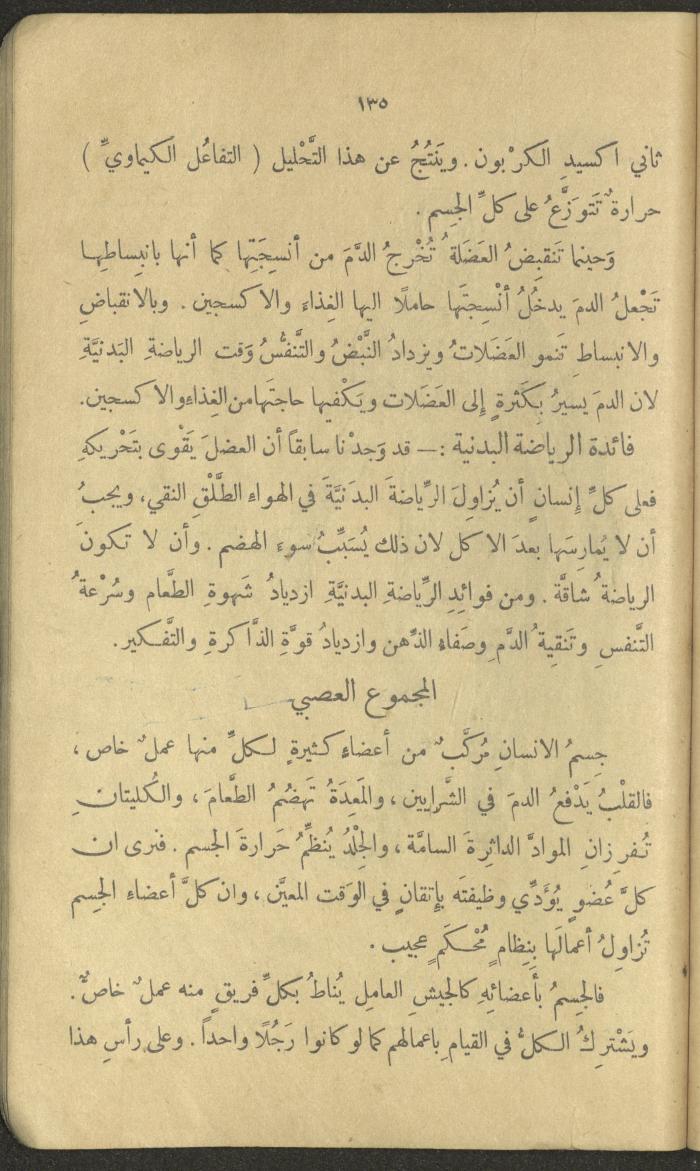 ١٣٥
ثاني اكسيدِ الكرْبون. ويَنتُجُ عن هذا التَّحْليل ( التفاعُل الكيماويِّ )
حرارةٌ تَتوزَّعُ على كلِّ الجسم.
وَحينما تَنقبِضُ العَضَلةُ تُخْرِجُ الدَّمَ من أنسِجَتِها كما أنها بانبِساطِها
تَجْعلُ الدمَ يدخُلُ أنْسِجتَها حاملًا اليها الغِذاء والاكسجين. وبالانقباضِ
والانبساطِ تَنمو العَضَلاتُ ويزدادُ النَّبْضُ والتَّنفُّسُ وَقت الرياضةِ البَدنيَّةِ
لان الدمَ يسيرُ بِكَثرةٍ إلى العَضَلات ويَكْفيها حاجتَها من الغِذاءِ والاكسجين.
فائدة الرياضة البدنية :— قد وَجدْنا سابقاً أن العضلَ يَقْوى بتَحْريكهِ
فعلى كلِّ إنسانٍ أن يُزاوِلَ الرِّياضةَ البدَنيَّةَ في الهواءِ الطَّلْقِ النقي، ويجبُ
أن لا يُمارِسَها بعدَ الاكل لان ذلك يُسَبِّبُ سوء الهضم. وأن لا تكونَ
الرياضةُ شاقَّة. ومن فوائدِ الرِّياضةِ البدنيَّةِ ازديادُ شَهوةِ الطَّعام وسُرْعةُ
التَّنفسِ وتَنقيةُ الدَّمِ وصَفاء الذِّهن وازديادُ قوَّةِ الذَّاكرةِ والتَّفكير.
المجموع العصبي
جِسمُ الانسانِ مُركَّبٌ من أعضاءٍ كثيرةٍ لكلٍّ منها عملٌ خاص،
فالقلْبُ يَدْفعُ الدمَ في الشَّرايين، والمَعِدَةُ تَهضُمُ الطَّعامَ، والكُليتانِ
تُفرِزانِ الموادَّ الداثِرةَ السامَّة، والجِلْدُ يُنظِّمُ حَرارةَ الجسم. فنرى ان
كلَّ عُضوٍ يُؤدِّي وظيفتَه بإتقانٍ في الوَقت المعيَّن، وان كلَّ أعضاءِ الجِسم
تُزاوِلُ أعمالَها بِنِظامٍ مُحْكَمٍ عجيب.
فالجِسمُ بأَعضائِهِ كالجيشِ العامِلِ يُناطُ بكلِّ فريقٍ منه عملٌ خاصٌّ.
ويَشْتركُ الكلُّ في القيامِ باعمالهم كما لو كانوا رَجُلًا واحداً. وعلى رأسِ هذا